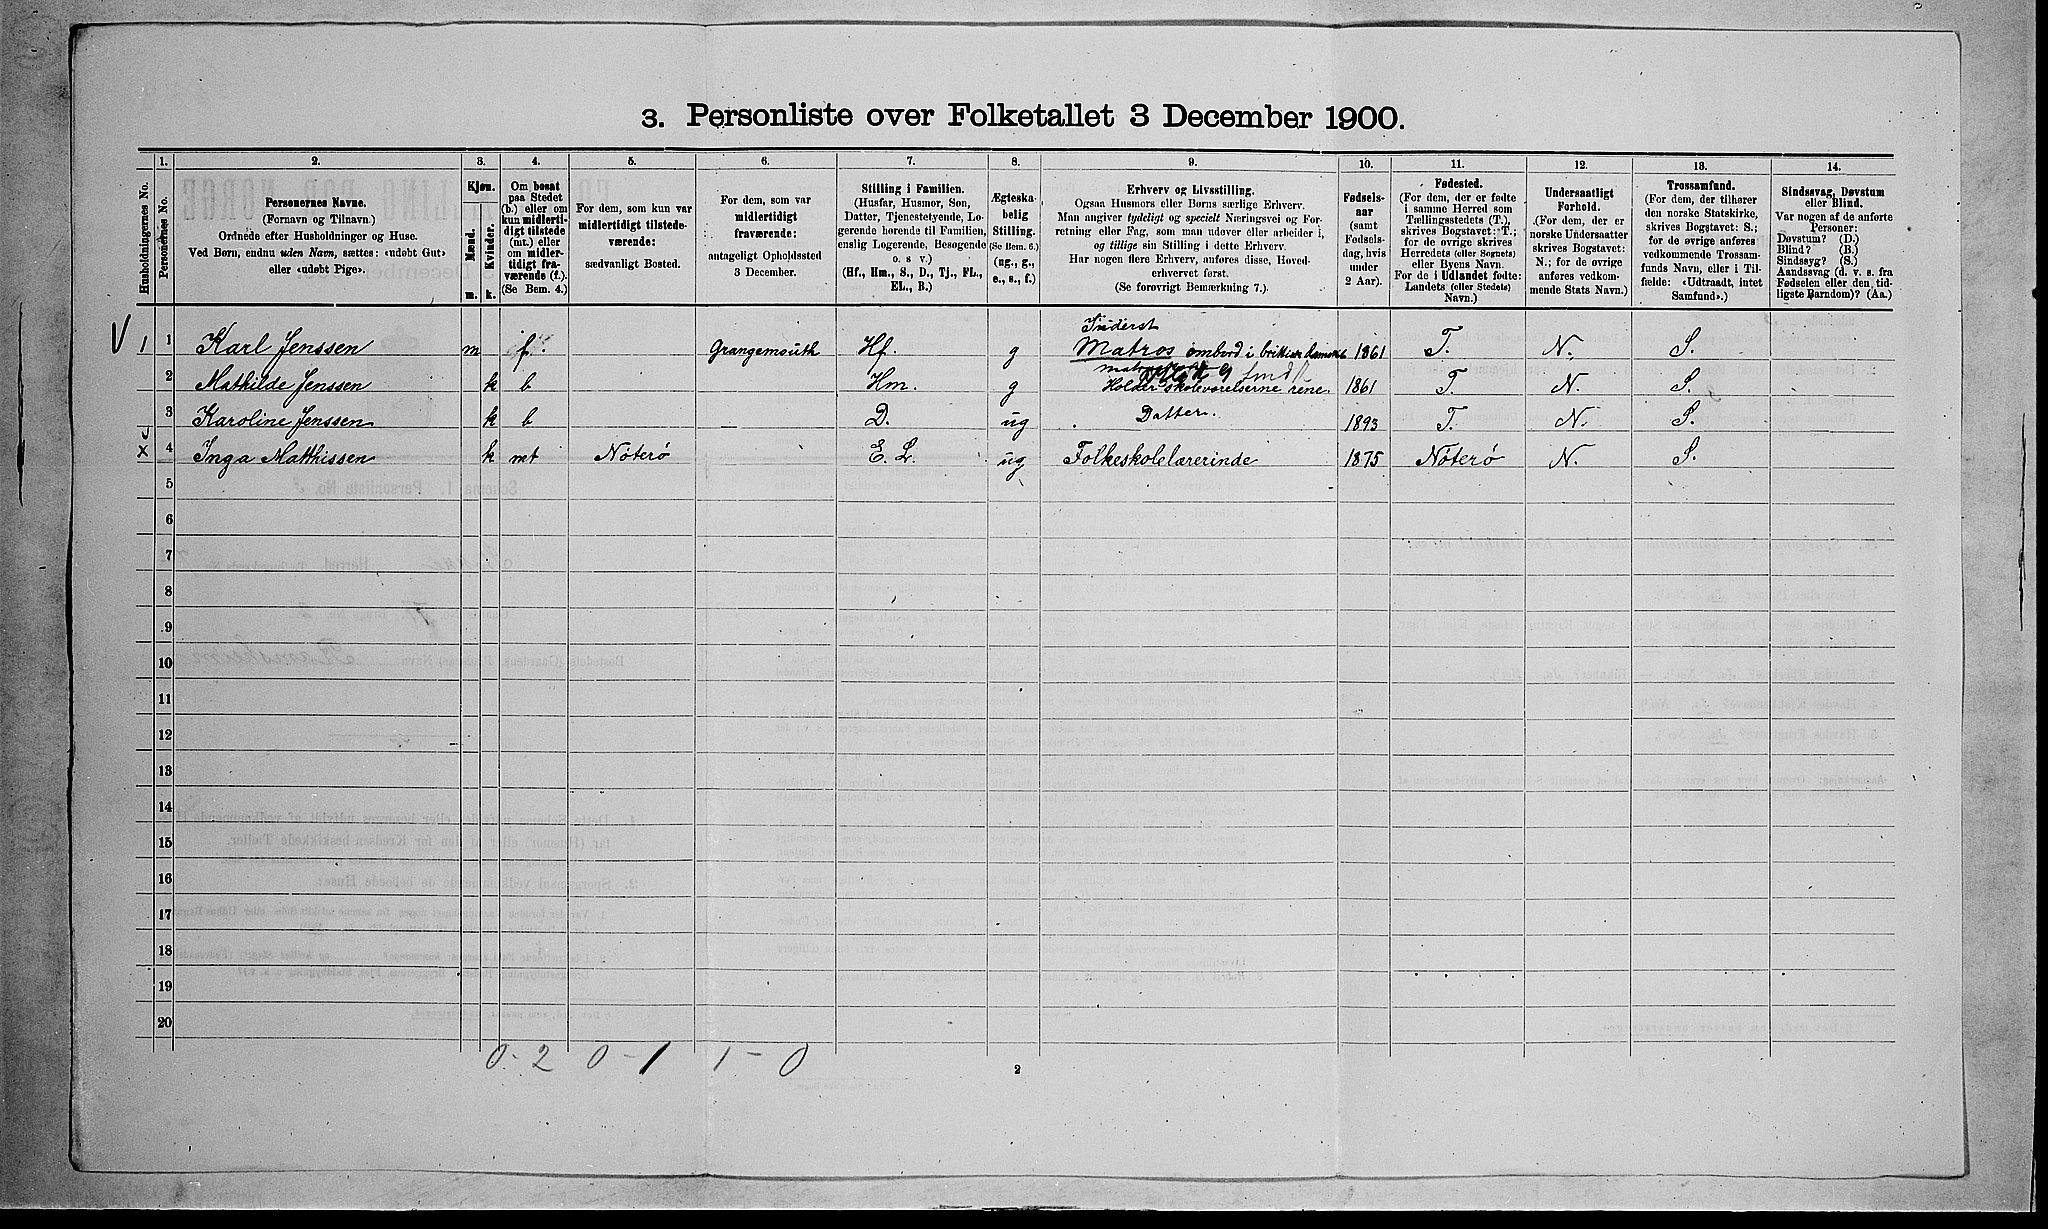 3. Personliste over Folketallet 3 December 1900.
1. 2. 3. 4. 5. 6. 7. 8. 9. 10. 11. 12. 13. 14.
Husholdningernes No.
Personernes No.
Personernes Navne.
(Fornavn og Tilnavn.)
Ordnede efter Husholdninger og Huse.
Ved Børn, endnu uden Navn, sættes: «udøbt Gut»
eller «udøbt Pige».
Kjøn.
Mænd.
Kvinder.
m. k.
Om bosat
paa Stedet
(b.) eller om
kun midlerti-
digt tilstede
(mt.) eller
om midler-
tidigt fra-
værende (f.).
(Se Bem. 4.)
For dem, som kun var
midlertidigt tilstede-
værende:
sædvanligt Bosted.
For dem, som var
midlertidigt
fraværende:
antageligt Opholdssted
3 December.
Stilling i Familien.
(Husfar, Husmor, Søn,
Datter, Tjenestetyende, Lo-
gerende hørende til Familien,
enslig Logerende, Besøgende
o. s v.)
(Hf., Hm., S., D., Tj., FL.,
EL., B.)
Ægteska-
belig
Stilling.
(Se Bem. 6.)
(ug., g.,
e., s., f.)
Erhverv og Livsstilling.
Ogsaa Husmors eller Børns særlige Erhverv.
Man angiver tydeligt og specielt Næringsvei og For-
retning eller Fag, som man udøver eller arbeider i,
og tillige sin Stilling i dette Erhverv.
Har nogen flere Erhverv, anføres disse, Hoved-
erhvervet først.
(Se forøvrigt Bemærkning 7.)
Fødsels-
aar
(samt
Fødsels-
dag, hvis
under
2 Aar).
Fødested.
(For dem, der er fødte
i samme Herred som
Tællingsstedets (T.),
skrives Bogstavet: T.;
for de øvrige skrives
Herredets (eller Sognets)
eller Byens Navn.
For de i Udlandet fødte:
Landets (eller Stedets)
Navn.)
Undersaatligt
Forhold.
(For dem, der er
norske Undersaatter
skrives Bogstavet:
N.; for de øvrige
anføres vedkom-
mende Stats Navn.)
Trossamfund.
(For dem, der tilhører
den norske Statskirke,
skrives Bogstavet: S.;
for de øvrige anføres
vedkommende Trossam-
funds Navn, eller i Til-
fælde: «Udtraadt, intet
Samfund».)
Sindssvag, Døvstum
eller Blind.
Var nogen af de anførte
Personer:
Døvstum? (D.)
Blind? (B.)
Sindssyg? (S.)
Aandssvag (d. v. s. fra
Fødselen eller den tid-
ligste Barndom)? (Aa.)
Inderst
V 1 1 Karl Jenssen m f. Grangemouth Hf. g Matros ombord i 1861 T. N. S.
2 Mathilde Jenssen k b Hm. g Holder skoleværelserne rene. 1861 T N. S.
3 Karoline Jenssen k b D. ug Datter. 1893 T. N. S.
X 4 Inga Matthissen k mt Nøterø E. L. ug Folkeskolelærerinde 1875 Nøterø N. S.
5
6
7
8
9
10
11
12
13
14
15
16
17
18
19
20
0-2 0-1 1-0
2